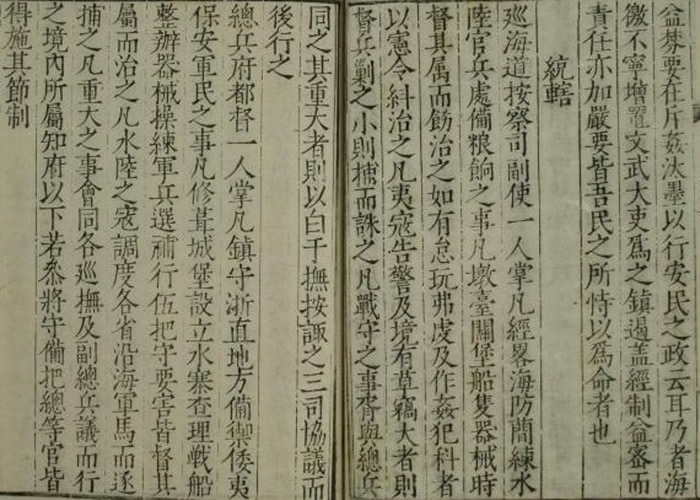 益棼要在斥姦汰墨以行安民之政云耳乃者海
徼不寧增置文武大吏爲之鎮遏盖經制益密而
責任亦加嚴要皆吾民之所恃以爲命者也
統轄
廵海道按察司副使一人掌凡經畧海防蕳練水
陸官兵處備粮餉之事凡墩臺關堡船隻器械時
督其属而飭治之如有怠玩弗虔及作姦犯科者
以憲令糾治之凡夷寇告警及境有草竊大者則
督兵剿之小則捕而誅之凡戰守之事胥與總兵
同之其重大者則以白于撫按諏之三司協議而
後行之
總兵府都督一人掌凡鎮守浙直地方備禦倭夷
保安軍民之事凡修葺城堡設立水寨查理戦船
整辦器械操練軍兵選補行伍把守要害皆督其
屬而治之凡水陸之寇調度各省沿海軍馬而逐
捕之凡重大之事會同各廵撫及副總兵議而行
之境内所屬知府以下若叅將守備把總等官皆
得施其節制